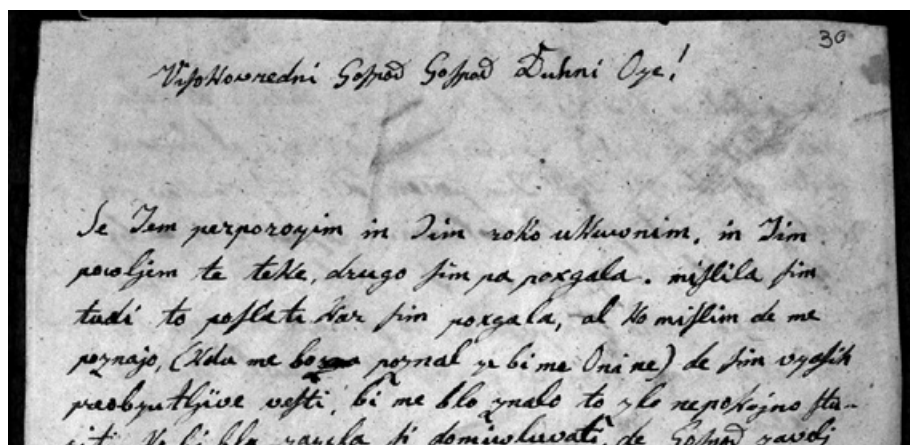 30
Visokovredni Gospod Gospod Duhni Oye!
Se Jem perporozim in Jim roko ukuvnim, in Jim
povoljem te teke, drugo sim pa poxgala. mislila sim
tudi to poslati kar sim poxgala, al ko mislim de me
poznajo, (kdu me poznal ze bi me Oni ne) de sim vzasih
preobzutljive vesti, bi me blo znalo to zlo nepokojno stu-
de Gospod zavolj